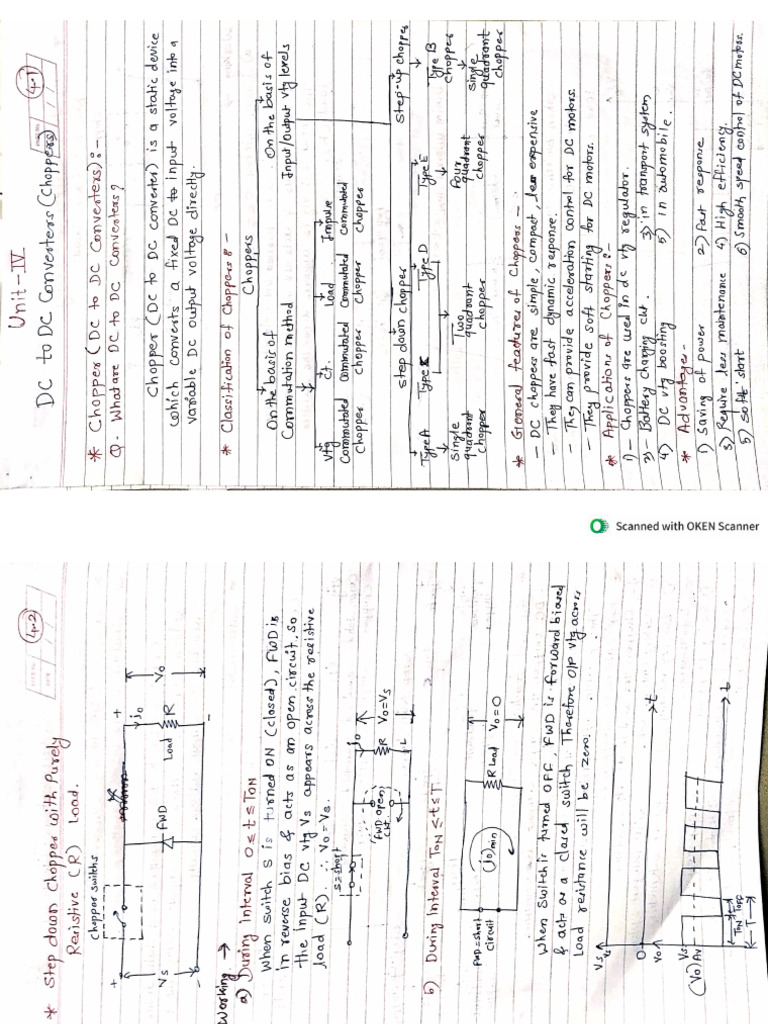 Unit-IV
4.1
DC to DC Converters (Choppers)
* Chopper (DC to DC Converters) :-
Q. What are DC to DC Converters?
Chopper (DC to DC converter) is a static device
which converts a fixed DC to input voltage into a
variable DC output voltage directly.
* Classification of Choppers :-
Choppers
On the basis of
Commutation method
On the basis of
Input/Output vtg levels
Vtg
Commutated
chopper
Ct.
Commutated
chopper
Load
Commutated
chopper
Impulse
Commutated
chopper
Step down chopper
Step-up chopper
Type A
Type D
Type E
Type B
chopper
Single
quadrant
chopper
Two
quadrant
chopper
Four
quadrant
chopper
Single
quadrant
chopper
* General features of Choppers -
- DC choppers are simple, compact, less expensive
- They have fast dynamic response.
- They can provide acceleration control for DC motors.
- They provide soft starting for DC motors.
* Applications of Choppers :-
1) - Choppers are used in dc vtg regulator.
2) - Battery charging ckt. 3) in transport system
4) DC vtg boosting 5) in automobile.
* Advantages -
1) Saving of power 2) Fast response
3) Require less maintenance 4) High efficiency.
5) Soft start 6) Smooth speed control of DC motors.
Scanned with OKEN Scanner
4.2
* Step down chopper with Purely
Resistive (R) Load.
chopper switch s
+
Vs
-
FWD
Load
R
io
+
-
Vo
Working →
a) During Interval 0 ≤ t ≤ TON
When switch S is turned ON (closed), FWD is
in reverse bias & acts as an open circuit. So
the input DC vtg Vs appears across the resistive
load (R). ∴ Vo = Vs.
S = short
FWD open
ckt
io
R
L
Vo = Vs
b) During Interval TON ≤ t ≤ T
FWD = short
circuit
(io)min
R Load
Vo = 0
When Switch is turned OFF, FWD is forward biased
& acts as a closed switch. Therefore O/P vtg across
Load resistance will be zero.
Vs
0
t
Vo
Vs
(Vo)Av
t
TON
TOFF
T